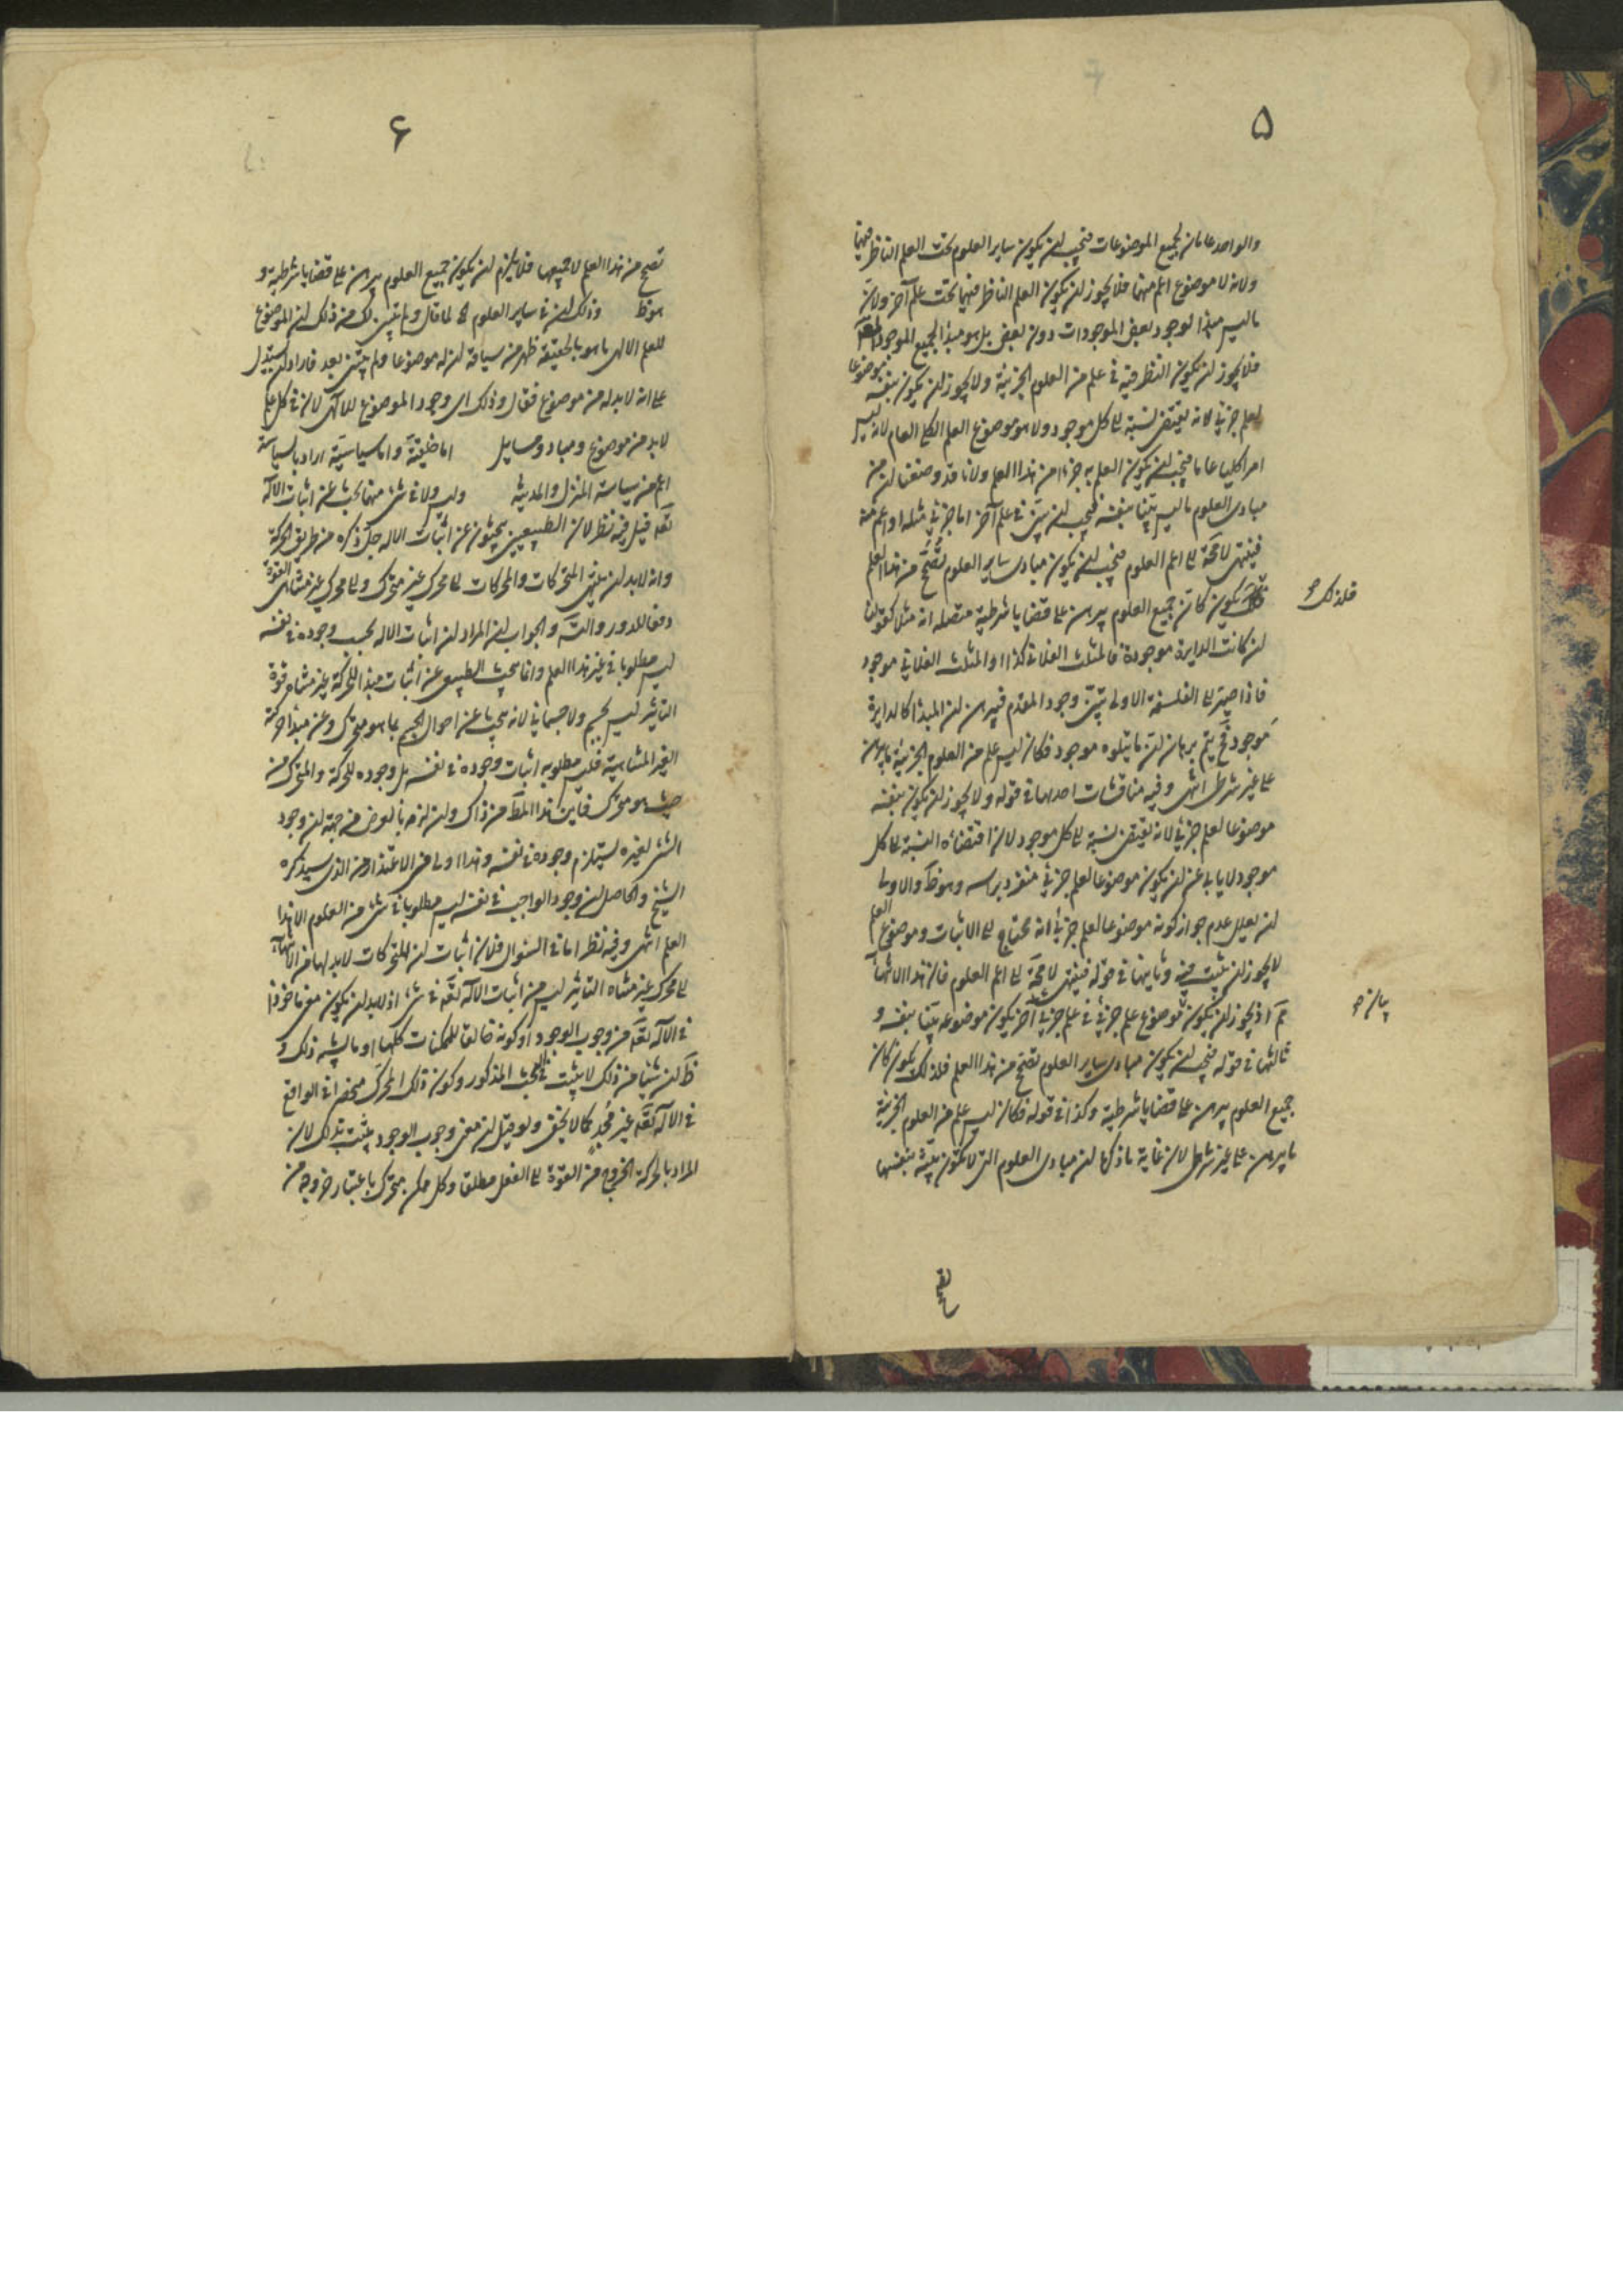 ۵
والواحد عامان لجميع الموضوعات فيجب ان يكون ساير العلوم تحت العلم الناظر فيهما
ولانه لا موضوع اعم منهما فلا يجوز ان يكون العلم الناظر فيهما تحت علم آخر ولان
ما ليس مبدا لوجود بعض الموجودات دون بعض بل هو مبدأ لجميع الموجود المعلول
فلا يجوز ان يكون النظر فيه في علم من العلوم الجزئية ولا يجوز ان يكون بنفسه موضوعا
لعلم جزئي لانه يقتضي نسبة الى كل موجود ولا هو موضوع العلم الكلي العام لانه ليس
امرا كليا عاما فيجب ان يكون العلم به جزءا من هذا العلم ولانا قد وضعنا ان من
مبادى العلوم ما ليس بينا بنفسه فيجب ان يبين في علم آخر اما جزئي مثله او اعم منه
فينتهى لا محة الى اعم العلوم فيجب ان يكون مبادى ساير العلوم تصح من هذا العلم
يكون كان جميع العلوم يبرهن على قضايا شرطية متصلة انه مثلا كقولنا
فلذلك
ان كانت الدايرة موجودة فالمثلث الفلاني كذا او المثلث الفلاني موجود
فاذا صير الى الفلسفة الاولى تبين وجود المقدم فيبرهن ان المبدأ كالدايرة
موجود فح يتم برهان ان ما يتلوه موجود فكان ليس علم من العلوم الجزئية ما برهن
على غير شرط انتهى وفيه مناقشات احديها في قوله ولا يجوز ان يكون بنفسه
موضوعا لعلم جزئي لانه يقتضي نسبة الى كل موجود لان اقتضاه النسبة الى كل
موجود لا يابا عن ان يكون موضوعا لعلم جزئي منفرد براسه وهو ظ والاولى
ان يعلل عدم جواز كونه موضوعا لعلم جزئي انه محتاج الى الاثبات وموضوع العلم
لا يجوز ان يثبت فيه وثانيها في قوله فينتهى لا محة الى اعم العلوم فان هذا الانتهاء
مم اذ يجوز ان يكون موضوع علم جزئي في علم جزئي آخر يكون موضوعه بينا بنفسه و
ثالثها في قوله فيجب ان يكون مبادى ساير العلوم تصح من هذا العلم فلذلك يكون كان
جميع العلوم يبرهن على قضايا شرطية وكذا في قوله فكان ليس علم من العلوم الجزئية
ما يبرهن على غير شرط لان غاية ما ذكر ان مبادى العلوم التي لا تكون بينة بنفسها
۶
تصح من هذا العلم لا جميعها فلا يلزم ان يكون جميع العلوم يبرهن على قضايا شرطية و
هو ظ وذلك ان في ساير العلوم لما قال ولم يتبين لك من ذلك ان الموضوع
للعلم الالهى ما هو بالحقيقة ظهر من سياقه ان له موضوعا ولم يتبين بعد فاراد ان يستدل
على انه لا بد له من موضوع فقال وذلك اى وجود الموضوع للالهى لان في كل علم
لا بد من موضوع ومباد ومسايل اما خلقية واما سياسية اراد بالسياسة
اعم من سياسة المنزل والمدينة وليس ولا في شئ منها بحث عن اثبات الاله
تعه قيل فيه نظر لان الطبيعيين يبحثون عن اثبات الاله جل ذكره من طريق الحركة
وانه لا بد ان ينتهى المتحركات والمحركات الى محرك غير متحرك والى محرك غير متناهى القوة
دفعا للدور والتسه والجواب ان المراد ان اثبات الاله بحسب وجوده في نفسه
ليس مطلوبا في غير هذا العلم وانما يبحث الطبيعى عن اثبات مبدأ للحركة غير متناه قوة
التاثير ليس بجسم ولا جسماني لانه يبحث عن احوال الجسم بما هو متحرك وعن مبدأ حركته
الغير المتناهية فليس مطلوبه اثبات وجوده في نفسه بل وجوده للحركة والمتحرك من
حيث هو متحرك فاين هذا المط من ذاك وان لزمه بالعرض من جهة ان وجود
الشئ لغيره يستلزم وجوده في نفسه وهذا اولى من الاعتذار من الذى سيذكره
الشيخ والحاصل ان وجود الواجب في نفسه ليس مطلوبا في شئ من العلوم الا هذا
العلم انتهى وفيه نظر اما في السئوال فلان اثبات ان المتحركات لا بد لها من الانتهاء
الى محرك غير متناه التاثير ليس من اثبات الاله تعه في شئ اذ لا بد ان يكون معنى ماخوذا
في الاله تعه من وجوب الوجود او كونه خالقا للممكنات كلها او ما يشبه ذلك و
ظ ان شيئا من ذلك لا يثبت في البحث المذكور وكون ذلك المحرك منحصرا في الواقع
في الاله تعه غير مجد كما لا يخفى ولو قيل ان معنى وجوب الوجود يثبت بذلك لان
المراد بالحركة الخروج من القوة الى الفعل مطلقا وكل ممكن متحرك باعتبار خروجه من